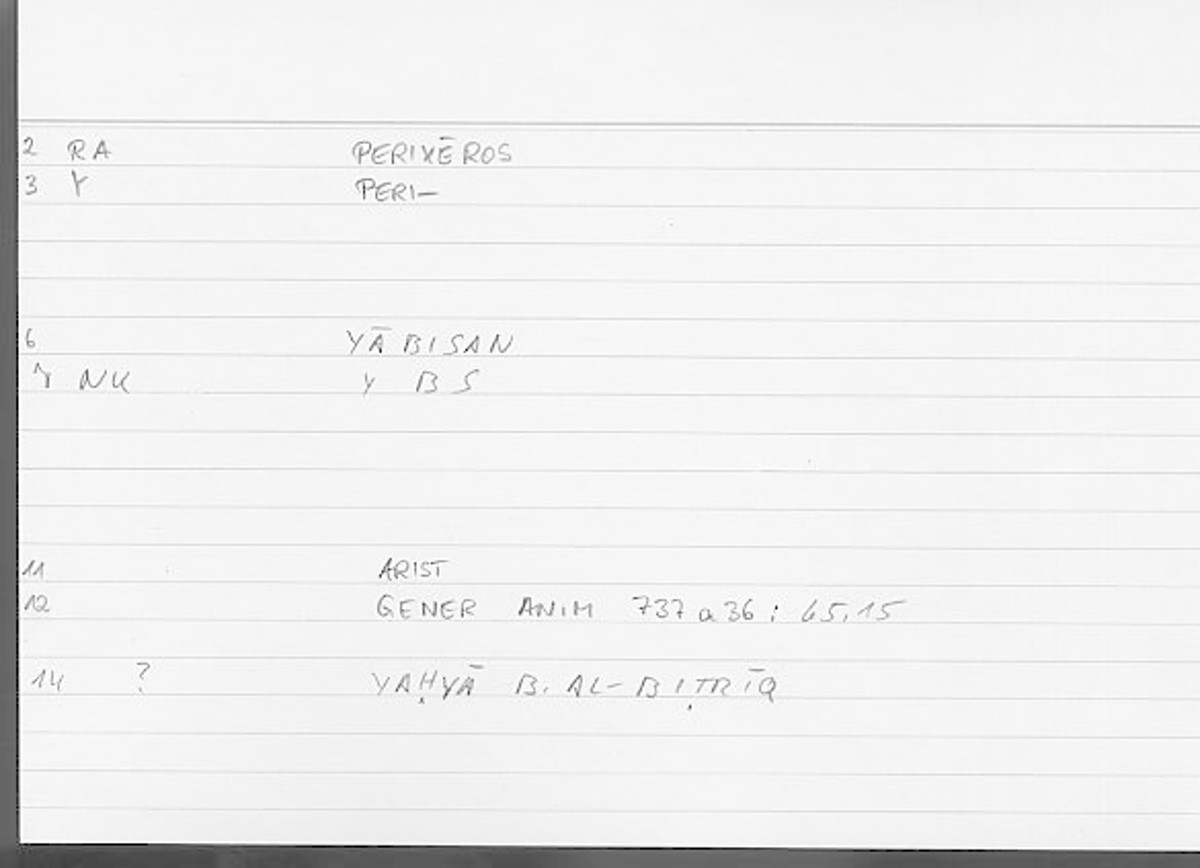 2 RA PERIXĒROS
3 Y PERI–
6 YĀBISAN
NK Y BS
11 ARIST
12 GENER ANIM 737 a 36 : 65,15
14 ? YAḤYĀ B. AL-BIṬRĪQ